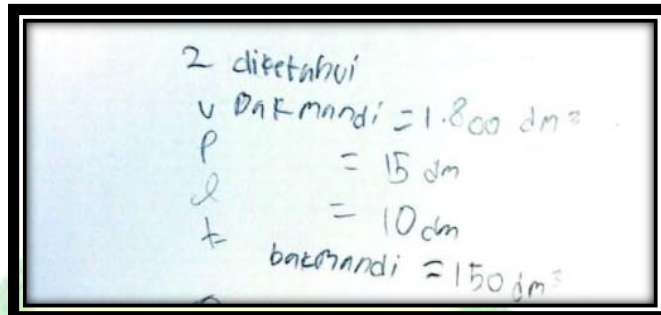 2 diketahui
v Bakmandi = 1.800 dm³
p = 15 dm
l = 10 dm
t
bakmandi = 150 dm³